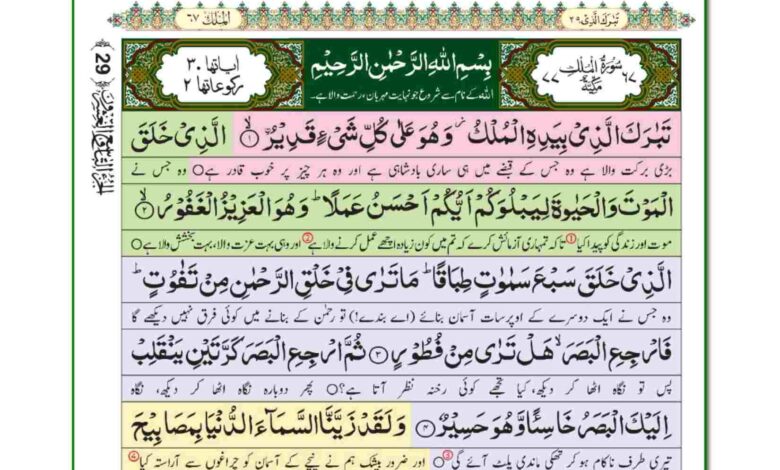 تَبٰرَكَ الَّذِیْ ٢٩
اَلْمُلْک ٦٧
سُوْرَةُ الْمُلْكِ مَكِّيَّةٌ
٦٧
٧٧
بِسْمِ اللّٰهِ الرَّحْمٰنِ الرَّحِیْمِ
اللہ کے نام سے شروع جو نہایت مہربان، رحمت والا ہے۔
اٰیاتها ٣٠
رکوعاتها ٢
29
تَبٰرَكَ الَّذِیْ بِیَدِهِ الْمُلْكُ ؗ وَهُوَ عَلٰى كُلِّ شَیْءٍ قَدِیْرُ ۙ﴿۱﴾ الَّذِیْ خَلَقَ
بڑی برکت والا ہے وہ جس کے قبضے میں ہی ساری بادشاہی ہے اور وہ ہر چیز پر خوب قادر ہے ○ وہ جس نے
الْمَوْتَ وَالْحَیٰوةَ لِیَبْلُوَكُمْ اَیُّكُمْ اَحْسَنُ عَمَلًا ؕ وَهُوَ الْعَزِیْزُ الْغَفُوْرُ ۙ﴿۲﴾
موت اور زندگی کو پیدا کیا ① تاکہ تمہاری آزمائش کرے کہ تم میں کون زیادہ اچھے عمل کرنے والا ہے ② اور وہی بہت عزت والا، بہت بخشش والا ہے ○
الَّذِیْ خَلَقَ سَبْعَ سَمٰوٰتٍ طِبَاقًا ؕ مَا تَرٰى فِیْ خَلْقِ الرَّحْمٰنِ مِنْ تَفٰوُتٍ ؕ
وہ جس نے ایک دوسرے کے اوپر سات آسمان بنائے (اے بندے!) تو رحمٰن کے بنانے میں کوئی فرق نہیں دیکھے گا
فَارْجِعِ الْبَصَرَ ۙ هَلْ تَرٰى مِنْ فُطُوْرٍ ﴿۳﴾ ثُمَّ ارْجِعِ الْبَصَرَ كَرَّتَیْنِ یَنْقَلِبْ
پس تو نگاہ اٹھا کر دیکھ، کیا تجھے کوئی رخنہ نظر آتا ہے؟ ○ پھر دوبارہ نگاہ اٹھا کر دیکھ، نگاہ
اِلَیْكَ الْبَصَرُ خَاسِئًا وَّهُوَ حَسِیْرٌ ﴿۴﴾ وَلَقَدْ زَیَّنَّا السَّمَآءَ الدُّنْیَا بِمَصَابِیْحَ
تیری طرف ناکام ہو کر تھکی ماندی پلٹ آئے گی ③ ○ اور ضرور بیشک ہم نے نیچے کے آسمان کو چراغوں سے آراستہ کیا ④